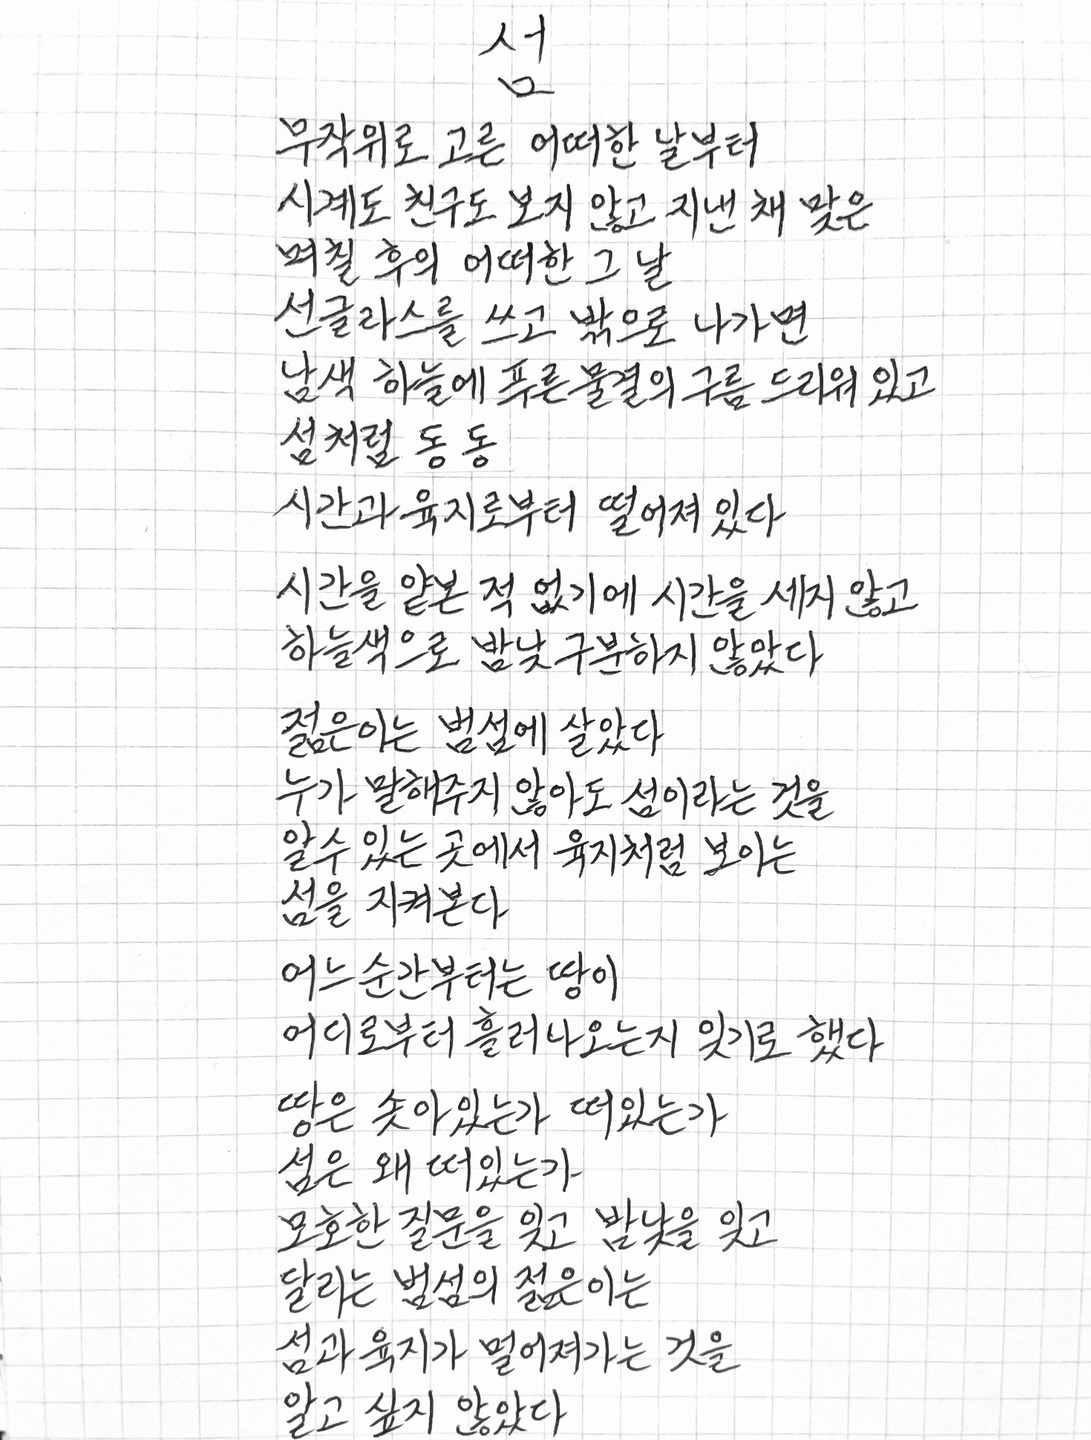 섬
무작위로 고른 어떠한 날부터
시계도 친구도 보지 않고 지낸 채 맞은
며칠 후의 어떠한 그 날
선글라스를 쓰고 밖으로 나가면
남색 하늘에 푸른 물결의 구름 드리워 있고
섬처럼 동 동
시간과 육지로부터 떨어져 있다
시간을 얕본 적 없기에 시간을 세지 않고
하늘색으로 밤낮 구분하지 않았다
젊은이는 범섬에 살았다
누가 말해주지 않아도 섬이라는 것을
알수 있는 곳에서 육지처럼 보이는
섬을 지켜본다
어느 순간부터는 땅이
어디로부터 흘러나오는지 잊기로 했다
땅은 솟아있는가 떠있는가
섬은 왜 떠있는가
모호한 질문을 잊고 밤낮을 잊고
달라는 범섬의 젊은이는
섬과 육지가 멀어져가는 것을
알고 싶지 않았다